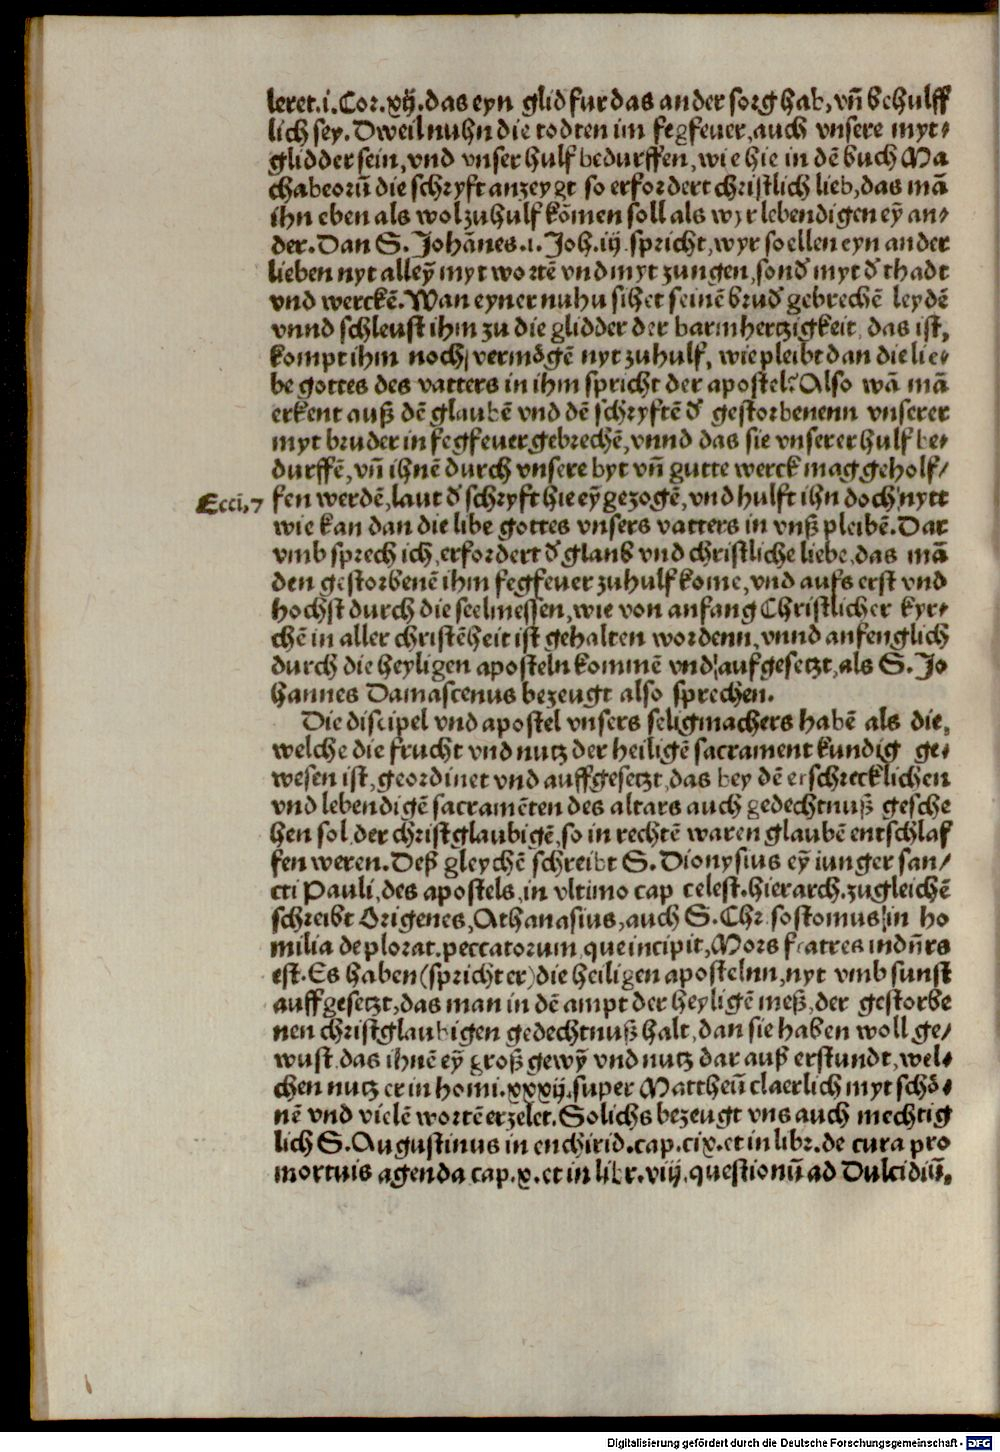 leret.i.Cor.xij.das eyn glid fur das ander sorg hab, vn̄ behulff
lich sey. Dweil nuhn die todten im fegfeuer, auch vnsere myt-
glidder sein, vnd vnser hulf bedurffen, wie hie in dē buch Ma
chabeorū die schryft anzeygt so erfordert christlich lieb, das mā
ihn eben als wol zu hulf kōmen soll als wyr lebendigen eȳ an-
der. Dan S. Johānes.i. Joh.iij. spricht, wyr soellen eyn ander
lieben nyt alleȳ myt wortē vnd myt zungen, sond̄ myt d̄ thadt
vnd werckē. Wan eyner nuhu sihet seinē brud̄ gebrechē leydē
vnnd schleust ihm zu die glidder der barmhertzigkeit, das ist,
kompt ihm noch vermögē nyt zu hulf, wie pleibt dan die lie-
be gottes des vatters in ihm spricht der apostel? Also wā mā
erkent auß dē glaubē vnd dē schryftē d̄ gestorbenenn vnserer
myt bruder in fegfeuer gebrechē, vnnd das sie vnserer hulf be-
durffē, vn̄ ihnē durch vnsere byt vn̄ gutte werck mag geholf-
Ecci, 7 fen werdē, laut d̄ schryft hie eȳ gezogē, vnd hulft ihn doch nytt
wie kan dan die libe gottes vnsers vatters in vnß pleibē. Dar
vmb sprech ich, erfordert d̄ glaub vnd christliche liebe, das mā
den gestorbenē ihm fegfeuer zu hulf kome, vnd aufs erst vnd
hochst durch die seelmessen, wie von anfang Christlicher kyr-
chē in aller christēheit ist gehalten wordenn, vnnd anfenglich
durch die heyligen aposteln kommē vnd aufgesetzt, als S. Jo
hannes Damascenus bezeugt also sprechen.
Die discipel vnd apostel vnsers seligmachers habē als die,
welche die frucht vnd nutz der heiligē sacrament kundig ge-
wesen ist, geordinet vnd auffgesetzt, das bey dē erschrecklichen
vnd lebendigē sacramēten des altars auch gedechtnuß gesche
hen sol der christglaubigē, so in rechtē waren glaubē entschlaf
fen weren. Deß gleychē schreibt S. Dionysius eȳ iunger san-
cti Pauli, des apostels, in vltimo cap celest. hierarch. zugleichē
schreibt Origenes, Athanasius, auch S. Chrisostomus in ho
milia de plorat. peccatorum, que incipit, Mors fratres indn̄rs
est. Es haben (spricht er) die heiligen apostelnn, nyt vmb sunst
auffgesetzt, das man in dē ampt der heyligē meß, der gestorbe
nen christglaubigen gedechtnuß halt, dan sie haben woll ge-
wust das ihnē eȳ groß gewȳ vnd nutz dar auß erstundt, wel-
chen nutz er in homi.xxxij. super Mattheū claerlich myt schö-
nē vnd vielē wortē erzelet. Solichs bezeugt vns auch mechtig
lich S. Augustinus in enchirid.cap.cix. et in libr. de cura pro
mortuis agenda cap.x. et in libr.viij. questionū ad Dulcidiū,
Digitalisierung gefördert durch die Deutsche Forschungsgemeinschaft - DFG